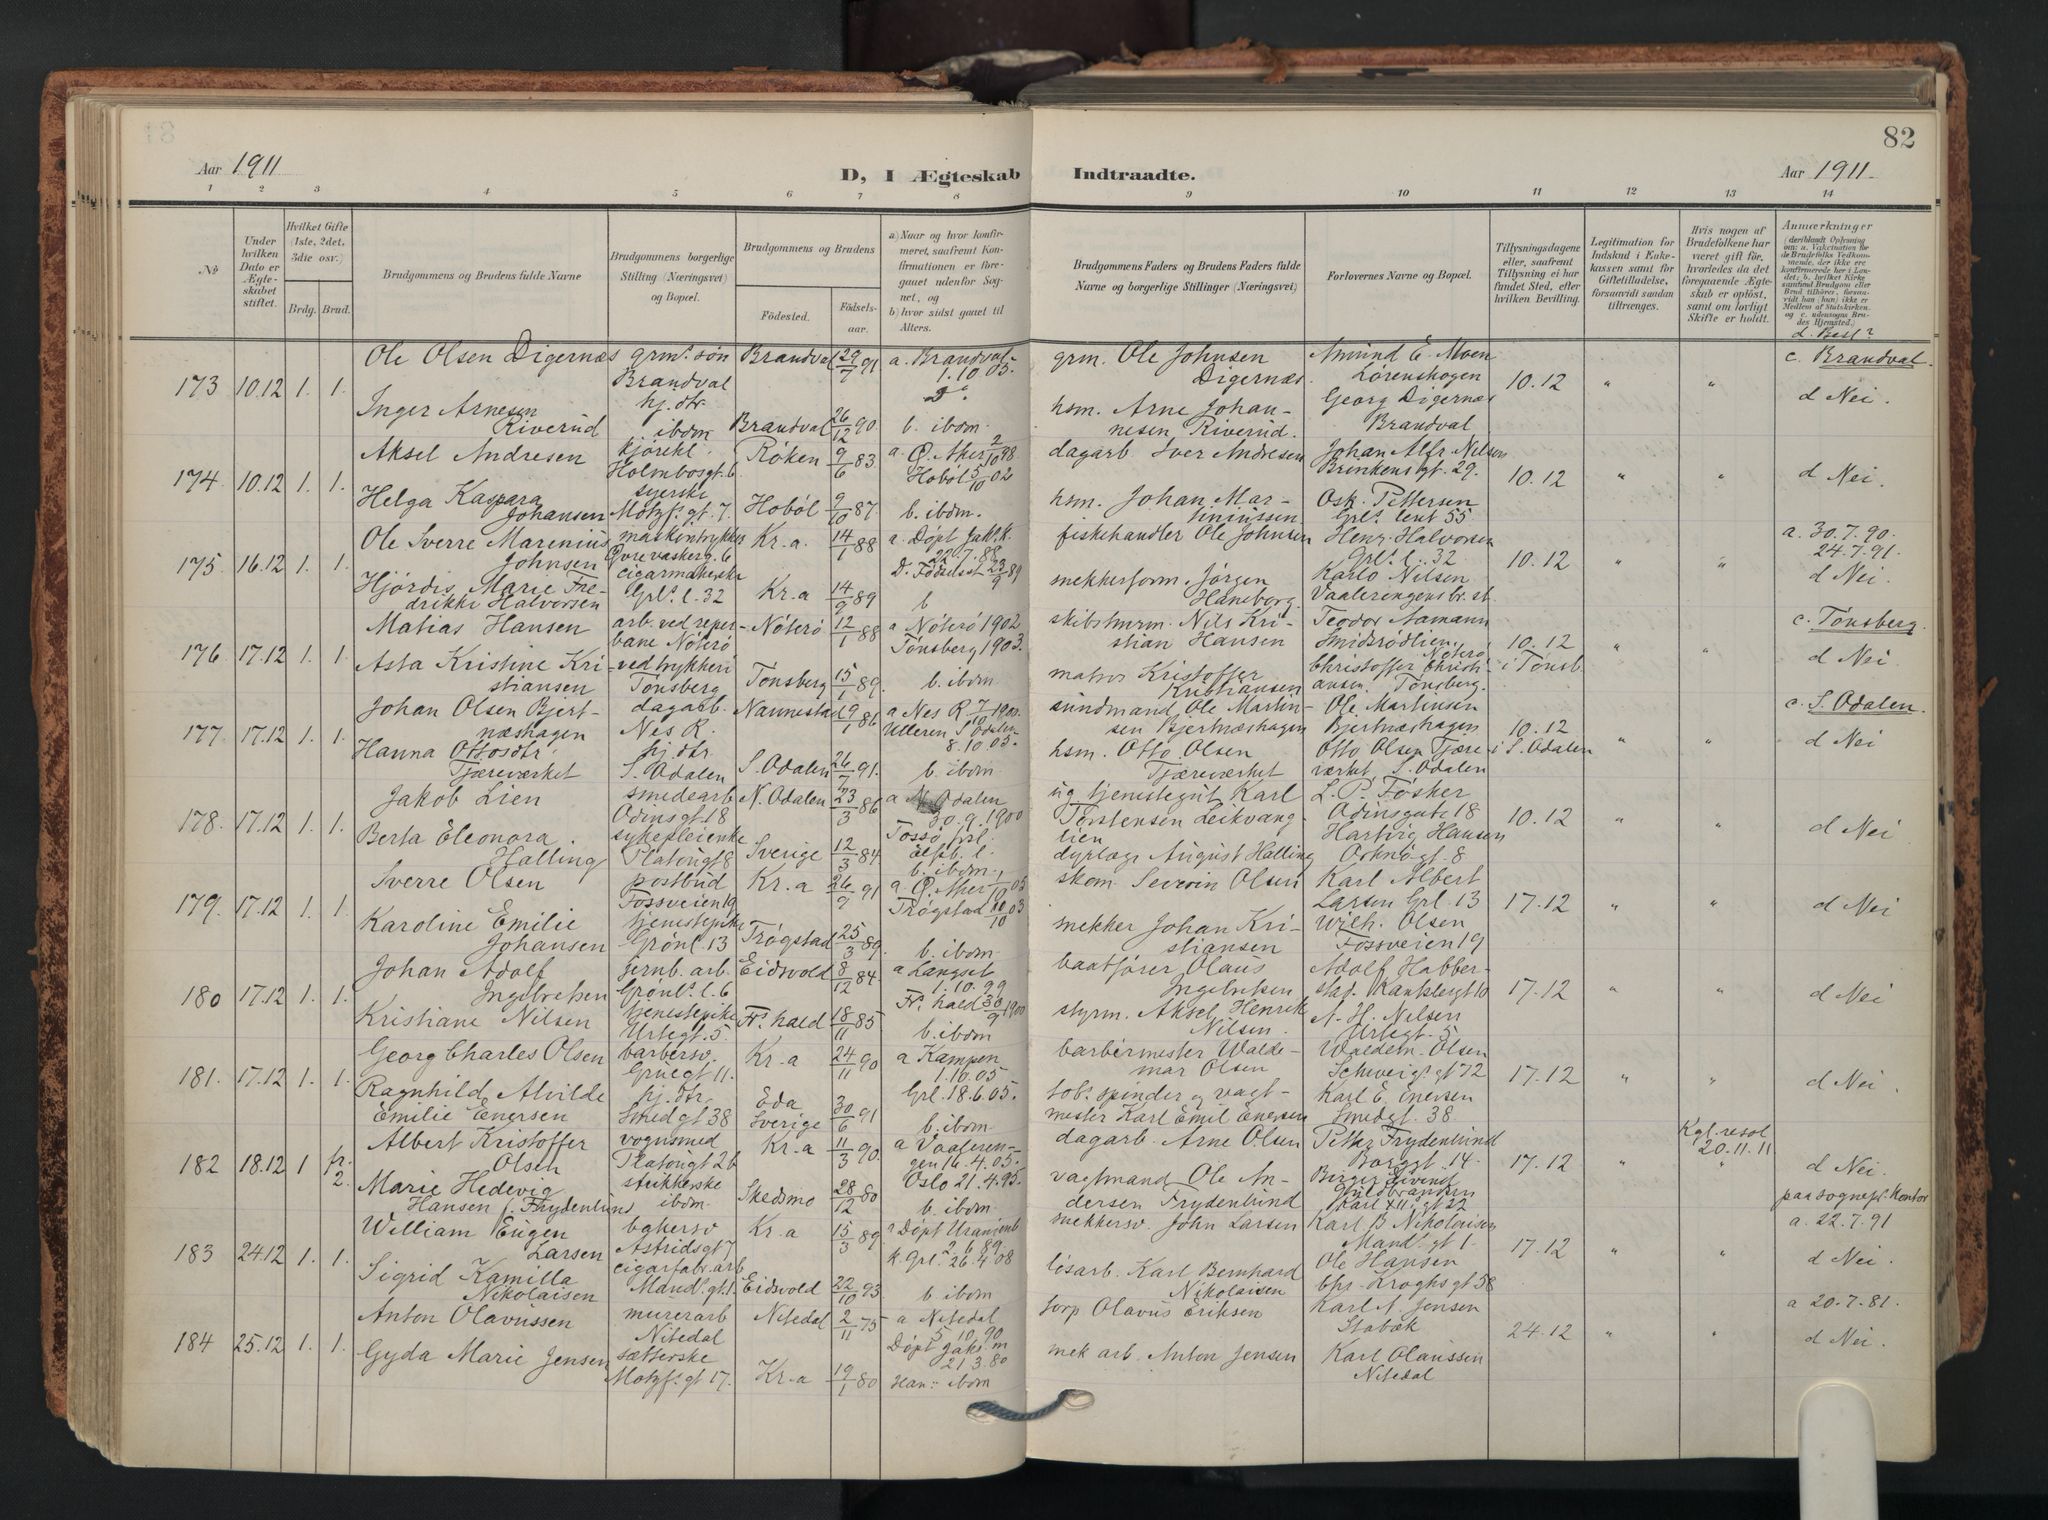 82
Aar 1911
D, I Ægteskab Indtraadte.
Aar 1911
1 2 3 4 5 6 7 8 9 10 11 12 13 14
№
Under hvilken Dato er Ægteskabet stiftet.
Hvilket Gifte (1ste, 2det, 3die osv.)
Brdg. Brud.
Brudgommens og Brudens fulde Navne
Brudgommens borgerlige Stilling (Næringsvei) og Bopæl.
Brudgommens og Brudens
Fødested. Fødselsaar.
a) Naar og hvor konfirmeret, saafremt Konfirmationen er foregaaet udenfor Sognet, og
b) hvor sidst gaaet til Alters.
Brudgommens Faders og Brudens Faders fulde Navne og borgerlige Stillinger (Næringsvei)
Forlovernes Navne og Bopæl.
Tillysningsdagene eller, saafremt Tillysning ei har fundet Sted, efter hvilken Bevilling.
Legitimation for Indskud i Enkekassen samt for Giftetilladelse, forsaavidt saadan tiltrænges.
Hvis nogen af Brudefolkene har været gift før, hvorledes da det foregaaende Ægteskab er opløst, samt om lovligt Skifte er holdt.
Anmærkninger
(deriblandt Oplysning om: a. Vakcination for Brudefolks Vedkommende, der ikke ere konfirmerede her i Landet; b. hvilket Kirkesamfund Brudgom eller Brud tilhører, forsaavidt han (hun) ikke er Medlem af Statskirken, og c. udensogns Brudes Hjemsted.)
d. Besl?
173 10.12 1. 1.
Ole Olsen Digernæs grms. søn Brandval Brandval 29/7 91 a. Brandval 1.10 05. grm. Ole Johnsen Digernæs. Amund E. Moen Lørenskogen 10.12 " " c. Brandval.
Inger Arnesen Riverud hj. dtr. ibdm Brandval 26/12 90 D° b. ibdm. hsm. Arne Johannesen Riverud. Georg Digernæs Brandval d Nei.
174 10.12 1. 1.
Aksel Andresen kjørekl. Holmbosgt. 6 Røken 9/6 83 a. Ø. Aker 2/10 98 dagarb. Iver Andresen Johan Alfr Nilsen Brinkensgt. 29. 10.12 " " d Nei.
Helga Kaspara Johansen syerske Motzfs. gt. 7. Hobøl 9/10 87. Hobøl 5/10 02 b. ibdm. hsm. Johan Martiniussen Osk. Pettersen Grls. lent 55
175 16.12 1. 1.
Ole Sverre Marenius Johnsen maskintrykker Øvre vaskerg. 6 Kr.a. 14/1 88 a. Døpt Jak. k. 22.7.88 fiskehandler Ole Johnsen Henr. Halvorsen Grl. l. 32 10.12 " " a. 30.7.90. 24.7.91.
Hjørdis Marie Fredrikke Halvorsen cigarmakerske Grls. l. 32 Kr.a 14/9 89 D. Fødselsst 23/9 89 b snekkerform Jørgen Haneborg. Karlo Nilsen Vaalerengens br. st. d Nei.
176. 17.12 1. 1.
Matias Hansen arb. ved reperbane Nøterø Nøterø 12/1 88 a Nøterø 1902 skibstmrm. Nils Kristian Hansen Teodor Aamann Smidsrødlien, Nøterø 10.12 i Tønsb " " c. Tønsberg.
Asta Kristine Kristiansen ved trykkeri Tønsberg Tønsberg 15/1 89. Tønsberg 1903. b. ibdm. matros Kristoffer Kristiansen Christoffer Christiansen. Tønsberg. d Nei
177. 17.12 1. 1.
Johan Olsen Bjertnæshagen dagarb. Nes R. Nannestad 19/9 86 a Nes R 7/10 1900. sundmand Ole Martinsen Bjertnæshagen Ole Martinsen Bjertnæshagen 10.12 i S. Odalen " " c. S. Odalen.
Hanna Ottosdtr. Tjæreværket hj. dtr. S. Odalen S. Odalen 26/7 91. Ulleren S Odalen 8.10 05. b. ibdm. hsm. Otto Olsen Tjæreværket Otto Olsen Tjæreværket S. Odalen d Nei
178. 17.12 1. 1.
Jakob Lien smedearb Odinsgt. 18 N. Odalen 23/3 86 a N Odalen 30.9.1900 ug tjenestegut Karl Torstensen Leikvanglien L. P. Føsker Odinsgate 18 10.12 " " d Nei
Berta Eleonora Halling sykepleienke Platousgt 8 Sverige 12/3 84 b. ibdm. dyrlæge August Halling Hartvig Hansen Orknøgt. 8
179. 17.12 1. 1.
Sverre Olsen postbud Fossveien 19 Kr.a 26/9 91 a. Ø. Aker 1/10 05 skom. Severin Olsen Karl Albert Larsen Grl. 13 17.12 " " d Nei
Karoline Emilie Johansen tjenestepike Grønl. 13 Trøgstad 25/3 89. Trøgstad 10/10 03 b. ibdm. snekker Johan Kristiansen Wilh. Olsen Fossveien 19
180 17.12 1. 1.
Johan Adolf Ingebretsen jernb. arb. Grønls. l. 6 Eidsvold 8/12 84. a Langset 1.10.99 baatfører Olaus Ingebretsen Adolf Habberstad. Rankslevgt 10 17.12 " " d Nei
Kristiane Nilsen tjenestepike Urtegt. 5. Frs. hald 18/11 85 Frs. hald 30/9 1900 b. ibdm styrm. Aksel Henrik Nilsen. A. H. Nilsen Urtegt. 5
181. 17.12 1. 1.
Georg Charles Olsen barbersv. Gruegt 11. Kr.a 24/11 90 a Kampen 1.10.05. barbermester Waldemar Olsen Waldem. Olsen Schweigs. gt 72 17.12 " " d Nei
Ragnhild Alvilde Emilie Enersen hj. dtr. Smedgt 38 Eda Sverige 30/6 91 Grl. 18.6.05. b. ibdm. tob. spinder og vagtmester Karl Emil Enersen Karl E. Enersen Smedgt. 38
182 18.12 1 fr. 2.
Albert Kristoffer Olsen vognsmed Platousgt 26 Kr.a 11/3 90. a Vaalerengen 16.4.05. dagarb. Arne Olsen Petter Frydenlund Borggt. 14. 17.12 " Kgl. resol 20.11.11 " d Nei.
Marie Hedevig Hansen f. Frydenlund strikkerske ibdm. Skedsmo 28/12 80 Oslo 21.4.95. b. ibdm. vagtmand Ole Andersen Frydenlund Birger Eivind Guldbrandsen Karl XII. gt 22 paa sognepr. kontor
183 24.12 1. 1.
William Eugen Larsen bokersv Astridsgt 7 Kr.a 15/3 89 Døpt Uranienb 2.6.89 k. Grl. 26.4.08 snekkersv. John Larsen Karl B Nikolaisen Mandls. gt 1. 17.12 " " a. 22.7.91
Sigrid Kamilla Nikolaisen cigarfabr. arb Mandls. gt. 1. Eidsvold 22/10 93 b. ibdm løsarb. Karl Bernhard Nikolaisen Ole Hansen Chr. Kroghsgt 58 d Nei.
184 25.12 1. 1.
Anton Olavussen murerarb Nitedal Nitedal 2/11 75 a Nitedal 5 10.90 torp Olavus Eriksen Karl A. Jensen Stabæk 24.12 " " a 20.7.81.
Gyda Marie Jensen sætterske Motzfs. gt 17. Kr.a 19/1 80 Døpt Jaks. m 21 3.80 ibdm mek arb. Anton Jensen Karl Olaussen Nitedal d Nei.